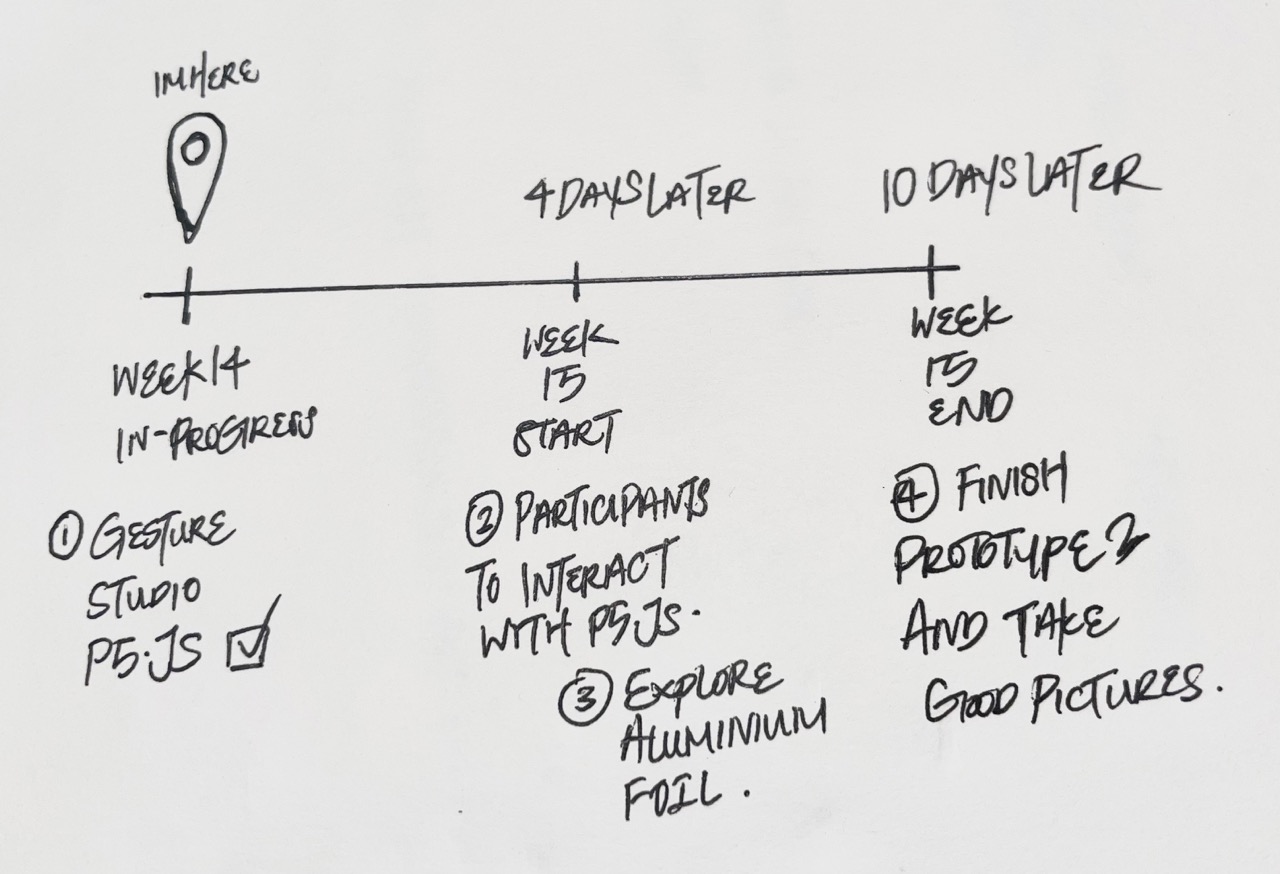 IM HERE
4 DAYS LATER
10 DAYS LATER
WEEK 14
IN-PROGRESS
WEEK
15
START
WEEK
15
END
① GESTURE
STUDIO
P5.JS
② PARTICIPANTS
TO INTERACT
WITH P5.JS.
③ EXPLORE
ALUMINIUM
FOIL.
④ FINISH
PROTOTYPE 2
AND TAKE
GOOD PICTURES.